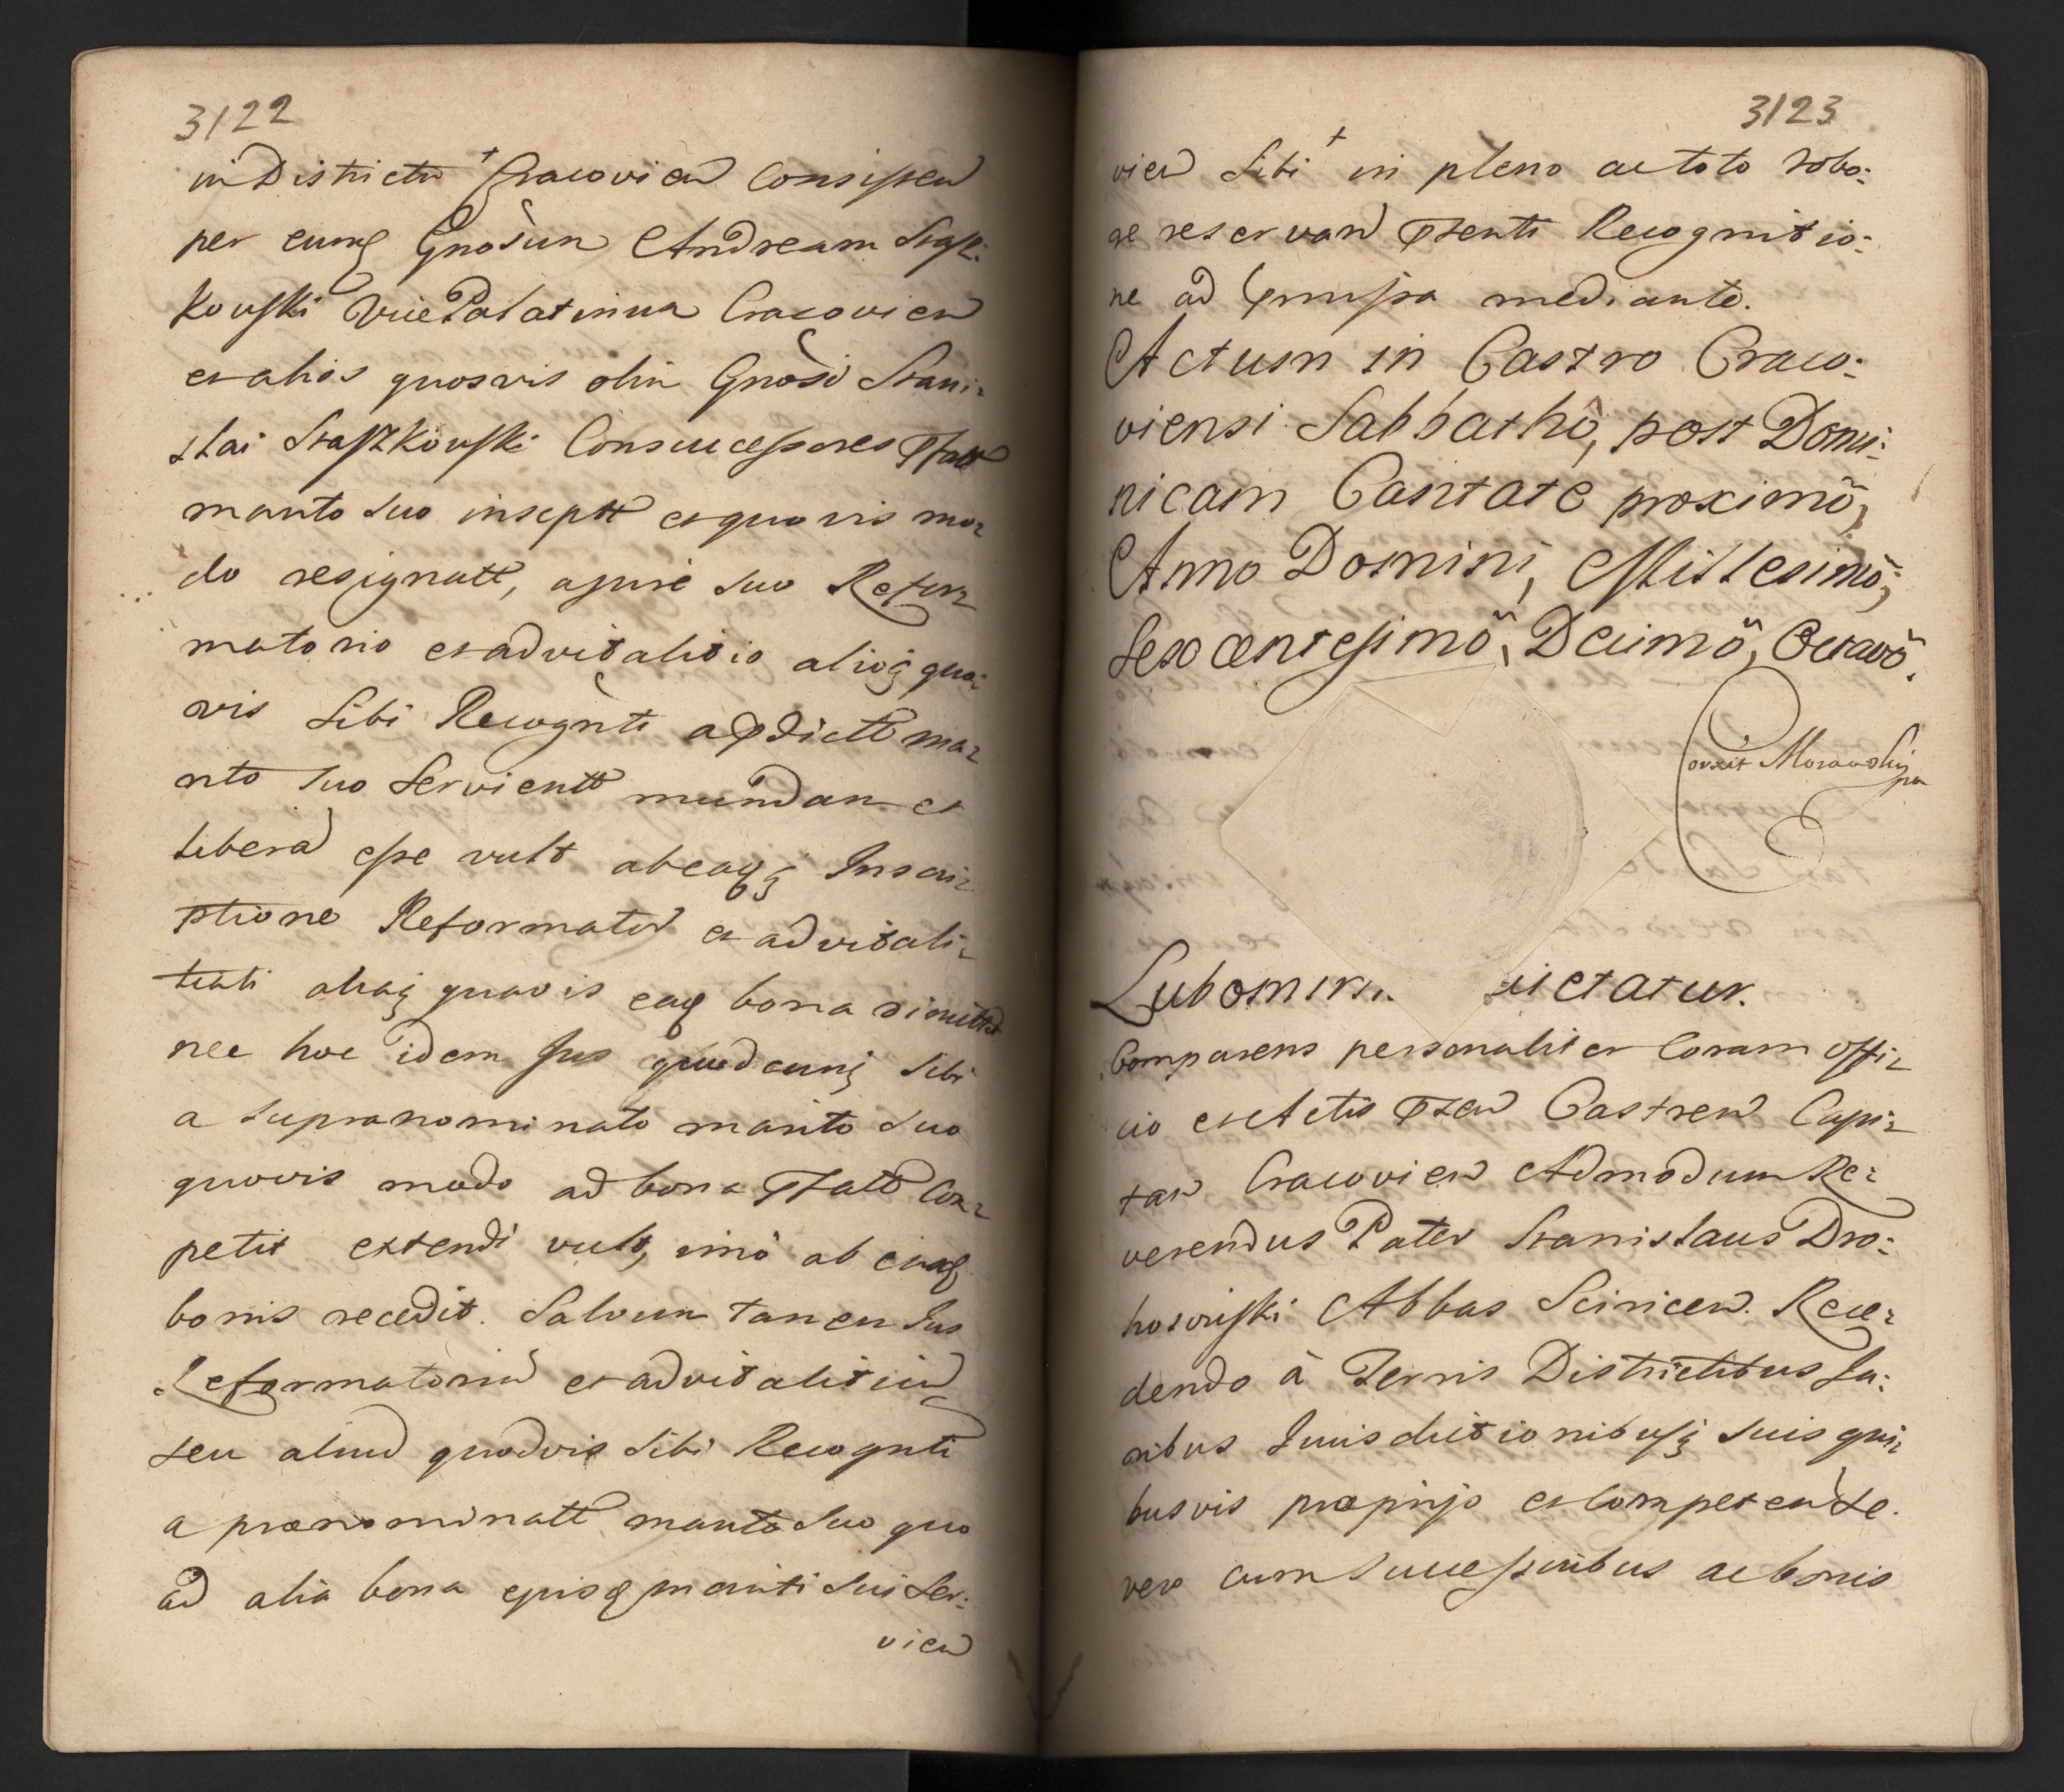 3122
in Districtu + Cracovien Consisten
per eumq Gnosum Andream Stasz:
kowski Vice Palatinum Cracovien
et alios quosvis olim Gnosi Stani:
slai Staszkowski Consuccessores Pfatt
marito suo inscptt et quovis mo:
do resignatt, a jure suo Refor:
matorio et advitalitio alioq quo:
vis Sibi Recognti a Pdictt ma:
rito suo Servientt mundam et
liberad esse vult ab eaqq Inscri:
ptione Reformator et advitali:
tiali aliaq quavis eaq bona
nec hoc idem Jus quodcunq Sibi
a supranominato marito suo
quovis modo ad bona Pfatt Com:
petit extendi vult, imo ab eisq
bonis recedit. Salvum tamen Jus
Reformatoriu et advitalitiu
seu aliud quodvis Sibi Recognti
a prænominatt marito Suo quo
ad alia bona ejusq mariti sui Ser:
vien
3123
vien Sibi + in pleno ac toto robo:
re reservan Psenti Recognitio:
ne ad Pmissa mediante.
Actum in Castro Craco:
viensi Sabbathô, post Domi:
nicam Cantate proximô,
Anno Domini, Millesimô,
Sexcentesimô, Decimô, Octavô.
Corxit Morawski
mp
Lubomir ictatur.
Comparens personaliter Coram Offi:
cio et Actis Psen Castren Capi:
tan Cracovien Admodum Re:
verendus Pater Stanislaus Dro:
howiski Abbas Sciricen. Rece:
dendo à Terris Districtibus Ju:
ribus Jurisdictionibusq suis qui:
busvis proprijs et Competen Se.
vero cum Successoribus ac bonis